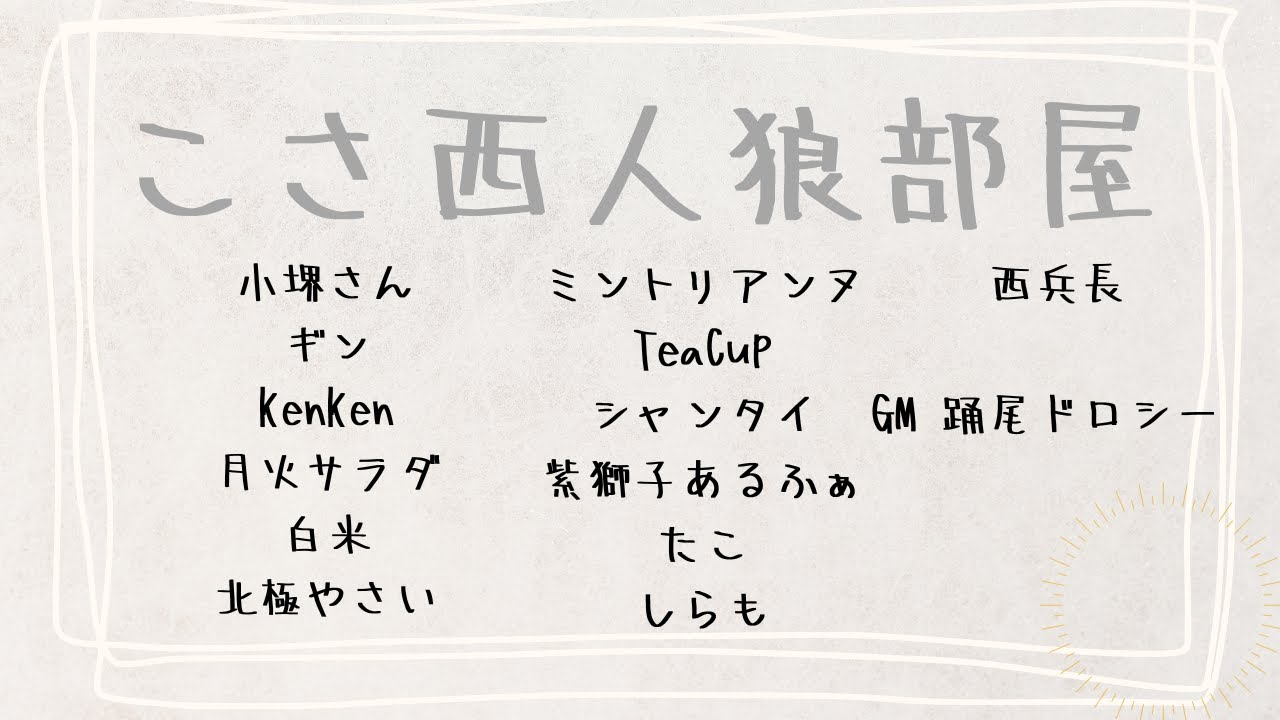 こさ西人狼部屋
小堺さん
ギン
KenKen
月火サラダ
白米
北極やさい
ミントリアンヌ
TeaCup
シャンタイ
紫獅子あるふぁ
たこ
しらも
西兵長
GM 踊尾ドロシー